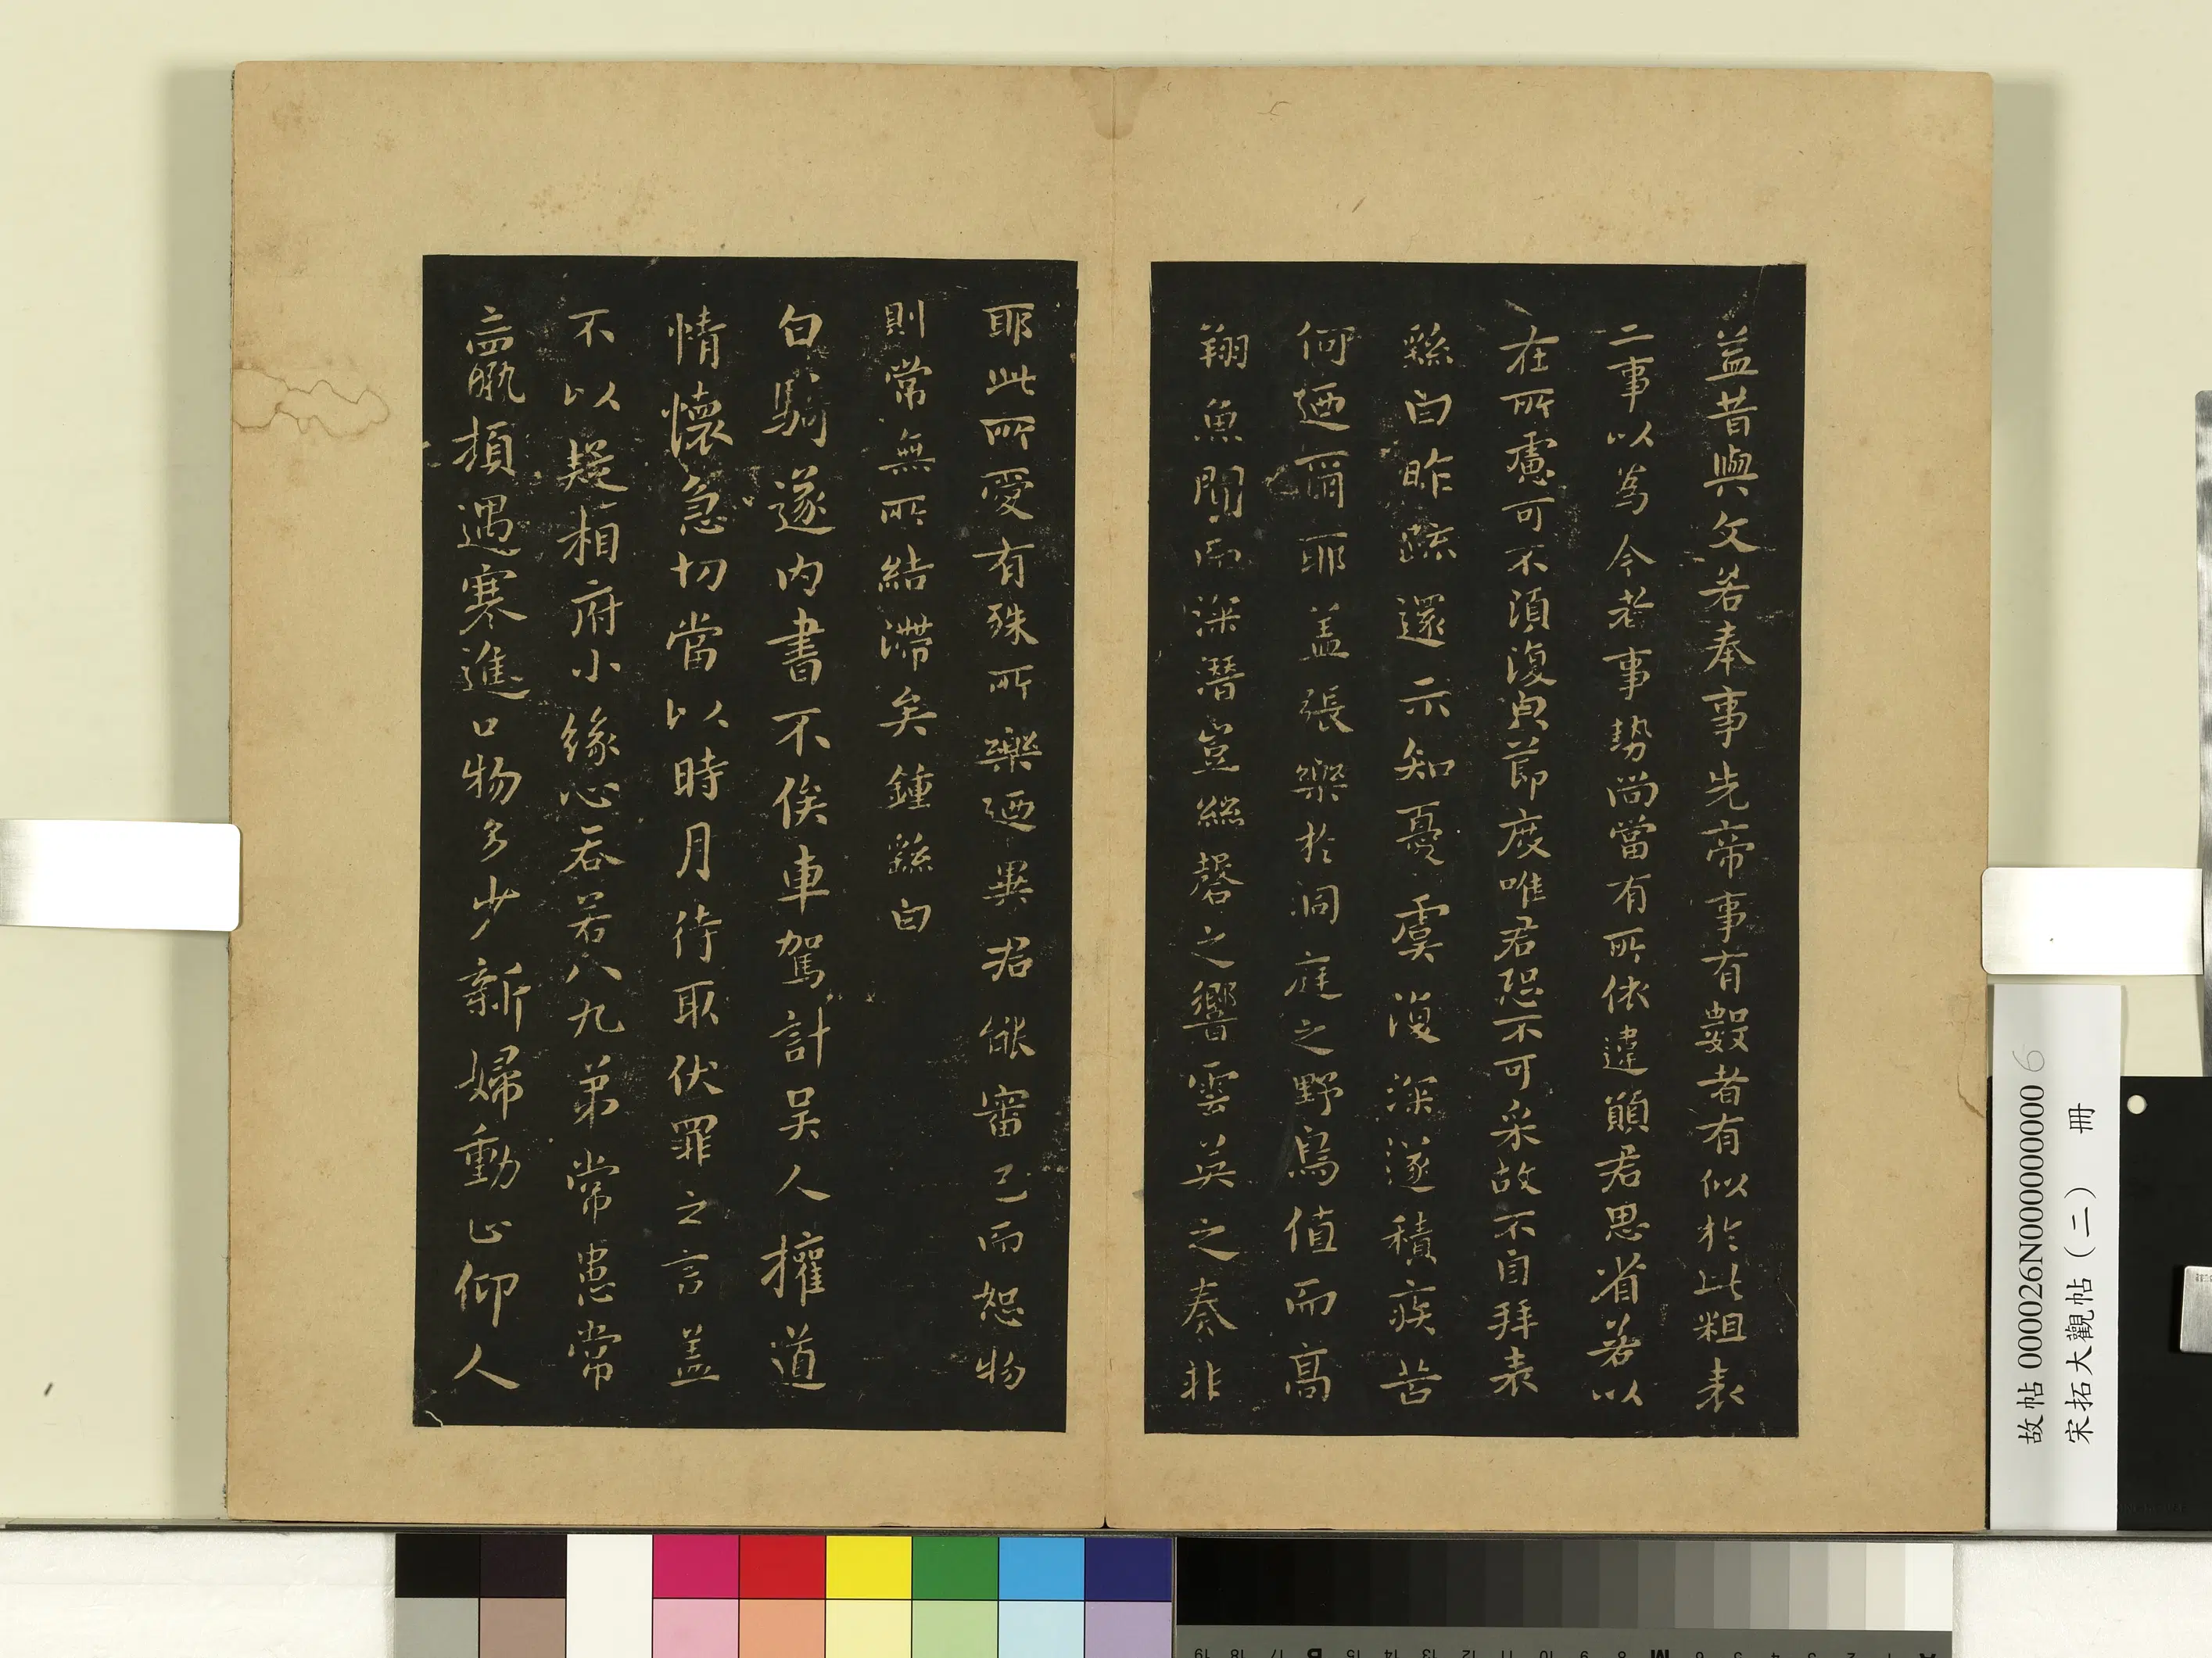 益昔與文若奉事先帝事有數者有似於此粗表
二事以為今者事勢尚當有所依違願君思省若以
在所慮可不須復貞節度唯君恐不可采故不自拜表
繇白昨疏還示知憂虞復深遂積疾苦
何迺爾耶盖張樂於洞庭之野鳥值而高
翔魚聞而深潛豈絲磬之響雲英之奏非
耶此所愛有殊所樂迺異君能審己而恕物
則常無所結滯矣鍾繇白
白騎遂內書不俟車駕計吴人擁道
情懷急切當以時月待取伏罪之言盖
不以疑相府小緣心吞若八九弟常患常
羸頓遇寒進口物多少新婦動止仰人
故帖 000026N000000000 6
宋拓大觀帖（二） 冊